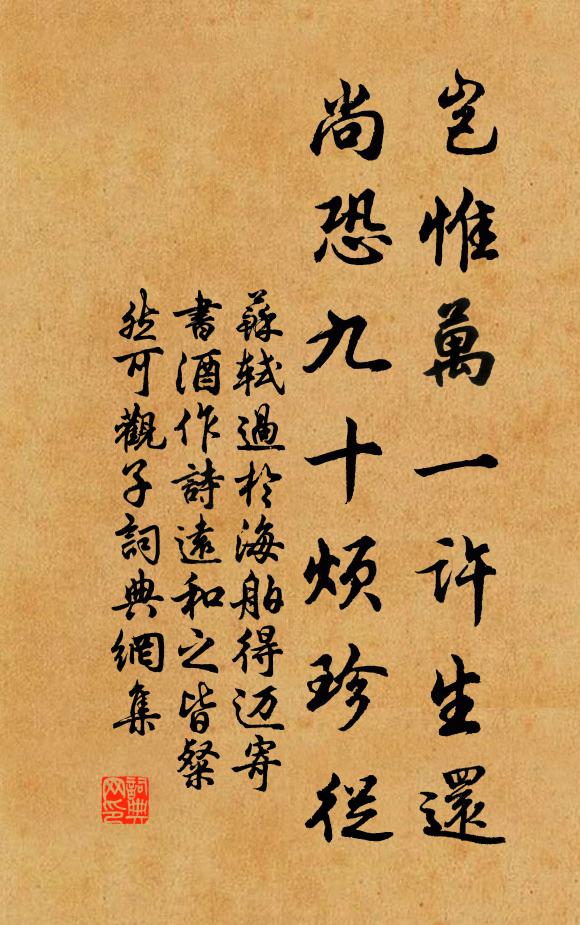 豈惟萬一許生還
尚恐九十煩珍從
蘇軾過於海舶得迈寄
書酒作詩遠和之皆粲
然可觀子詞典網集
詞典网印